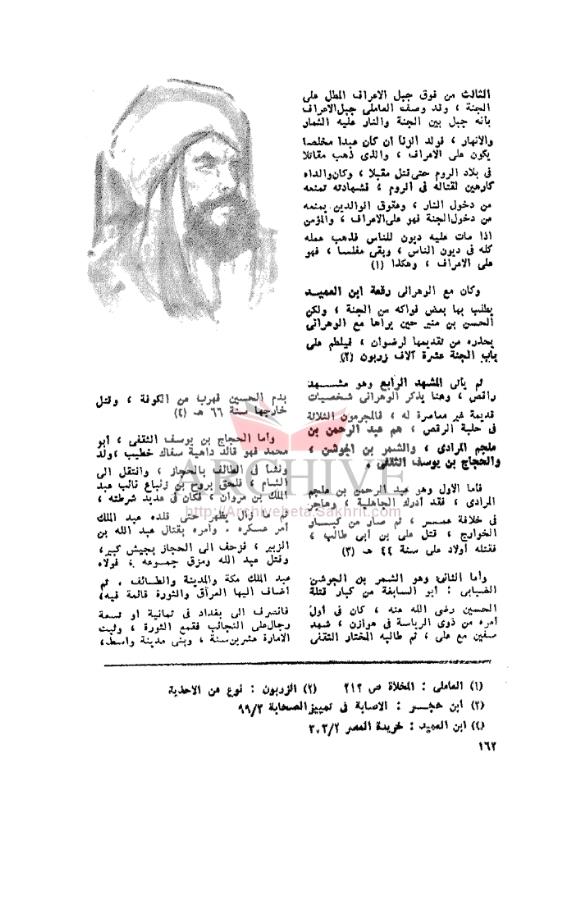 الثالث من فوق جبل الاعراف المطل على
الجنة ، وقد وصف العاملى جبل الاعراف
بانه جبل بين الجنة والنار عليه الثمار
والانهار ، فولد الزنا ان كان عبدا مخلصا
يكون على الاعراف ، والذى ذهب مقاتلا
فى بلاد الروم حتى قتل مقبلا ، وكان والداه
كارهين لقتاله فى الروم ، فشهادته تمنعه
من دخول النار ، وعقوق الوالدين يمنعه
من دخول الجنة فهو على الاعراف ، والمؤمن
اذا مات عليه ديون للناس فذهب عمله
كله فى ديون الناس ، وبقى مفلسا ، فهو
على الاعراف ، وهكذا (١)
وكان مع الوهرانى رقعة ابن العميد
يطلب بها بعض فواكه من الجنة ، ولكن
الحسن بن منير حين يراها مع الوهرانى
يحذره من تقديمها لرضوان ، فيلطم على
باب الجنة عشرة آلاف زربون (٢)
ثم يأتى المشهد الرابع وهو مشهد
راقص ، وهنا يذكر الوهرانى شخصيات
قديمة غير معاصرة له ، فالمجرمون الثلاثة
فى حلبة الرقص ، هم عبد الرحمن بن
ملجم المرادى ، والشمر بن الجوشن ،
والحجاج بن يوسف الثقفى .
فاما الاول وهو عبد الرحمن بن ملجم
المرادى ، فقد أدرك الجاهلية ، وهاجر
فى خلافة عمر ، ثم صار من كبار
الخوارج ، قتل على بن أبى طالب ،
فقتله أولاد على سنة ٤٤ هـ (٣)
وأما الثانى وهو الشمر بن الجوشن
الضبابى : أبو السابغة من كبار قتلة
الحسين رضى الله عنه ، كان فى أول
أمره من ذوى الرياسة فى هوازن ، شهد
صفين مع على ، ثم طالبه المختار الثقفى
بدم الحسين فهرب من الكوفة ، وقتل
خارجها سنة ٦٦ هـ (٤)
وأما الحجاج بن يوسف الثقفى ، أبو
محمد فهو قائد داهية سفاك خطيب ، ولد
ونشأ فى الطائف بالحجاز ، وانتقل الى
الشام ، فلحق بروح بن زنباع نائب عبد
الملك بن مروان ، فكان فى عديد شرطته ،
ثم ما زال يظهر حتى قلده عبد الملك
أمر عسكره . وأمره بقتال عبد الله بن
الزبير ، فزحف الى الحجاز بجيش كبير ،
وقتل عبد الله ومزق جموعه ، فولاه
عبد الملك مكة والمدينة والطائف . ثم
أضاف اليها العراق والثورة قائمة فيه ،
فانصرف الى بغداد فى ثمانية أو تسعة
رجال على النجائب فقمع الثورة ، وثبت
الامارة عشرين سنة ، وبنى مدينة واسط ،
ARCHIVE
http://Archivebeta.Sakhrit.com
(١) العاملى : المخلاة ص ٢١٢ (٢) الزربون : نوع من الاحذية
(٣) ابن حجر : الاصابة فى تمييز الصحابة ٩٩/٣
(٤) ابن العميد : خريدة العصر ٣٠٣/٢
١٦٢